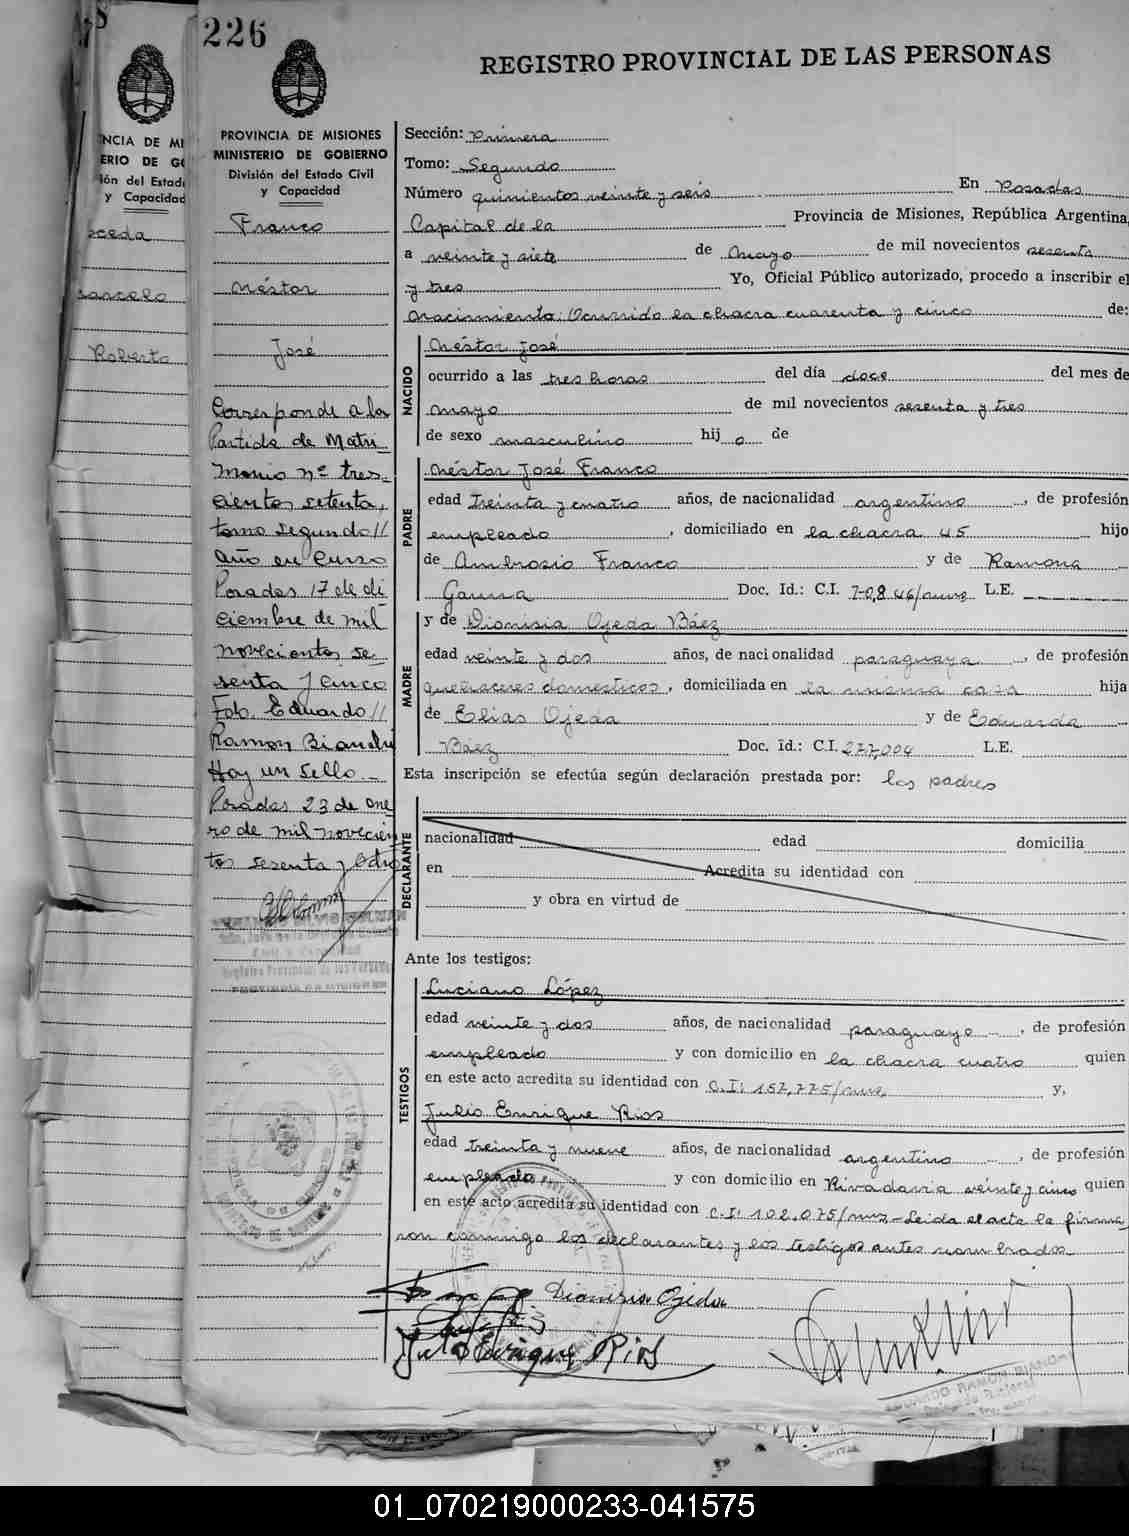 226
REGISTRO PROVINCIAL DE LAS PERSONAS
NCIA DE MI
ERIO DE G
ión del Estad
y Capacidad
oceda
arcelo
Roberto
PROVINCIA DE MISIONES
MINISTERIO DE GOBIERNO
División del Estado Civil
y Capacidad
Franco
Néstor
José
Corresponde a la
Partida de Matri-
monio nº tres-
cientos setenta,
tomo segundo//
año en curso
Posadas 17 de di
ciembre de mil
novecientos se-
senta y cinco
Fdo. Eduardo//
Ramon Bianchi
Hay un sello.-
Posadas 23 de ene
ro de mil novecien
tos sesenta y ocho
Sección: Primera
Tomo: Segundo
Número quinientos veinte y seis En Posadas
Capital de la Provincia de Misiones, República Argentina,
a veinte y siete de mayo de mil novecientos sesenta
y tres Yo, Oficial Público autorizado, procedo a inscribir el
nacimiento: Ocurrido la chacra cuarenta y cinco de:
NACIDO
Néstor José
ocurrido a las tres horas del día doce del mes de
mayo de mil novecientos sesenta y tres
de sexo masculino hij o de
PADRE
Néstor José Franco
edad treinta y cuatro años, de nacionalidad argentino, de profesión
empleado, domiciliado en la chacra 45 hijo
de Ambrosio Franco y de Ramona
Gauna Doc. Id.: C.I. 70,846/mnes L.E.
MADRE
y de Dionisia Ojeda Báez
edad veinte y dos años, de nacionalidad paraguaya, de profesión
quehaceres domesticos, domiciliada en la misma casa hija
de Elias Ojeda y de Eduarda
Báez Doc. Id.: C.I. 277,004 L.E.
Esta inscripción se efectúa según declaración prestada por: los padres
DECLARANTE
nacionalidad edad domicilia
en Acredita su identidad con
y obra en virtud de
Ante los testigos:
TESTIGOS
Luciano López
edad veinte y dos años, de nacionalidad paraguayo, de profesión
empleado y con domicilio en la chacra cuatro quien
en este acto acredita su identidad con C.I: 157,775/mnes y,
Julio Enrique Rios
edad treinta y nueve años, de nacionalidad argentino, de profesión
empleado y con domicilio en Rivadavia veinte y cinco quien
en este acto acredita su identidad con C.I: 102.075/mnes - Leida el acta la firma
ron conmigo los declarantes y los testigos antes nombrados
Dionisia Ojeda
Julio Enrique Rios
EDUARDO RAMON BIANCHI
01_070219000233-041575